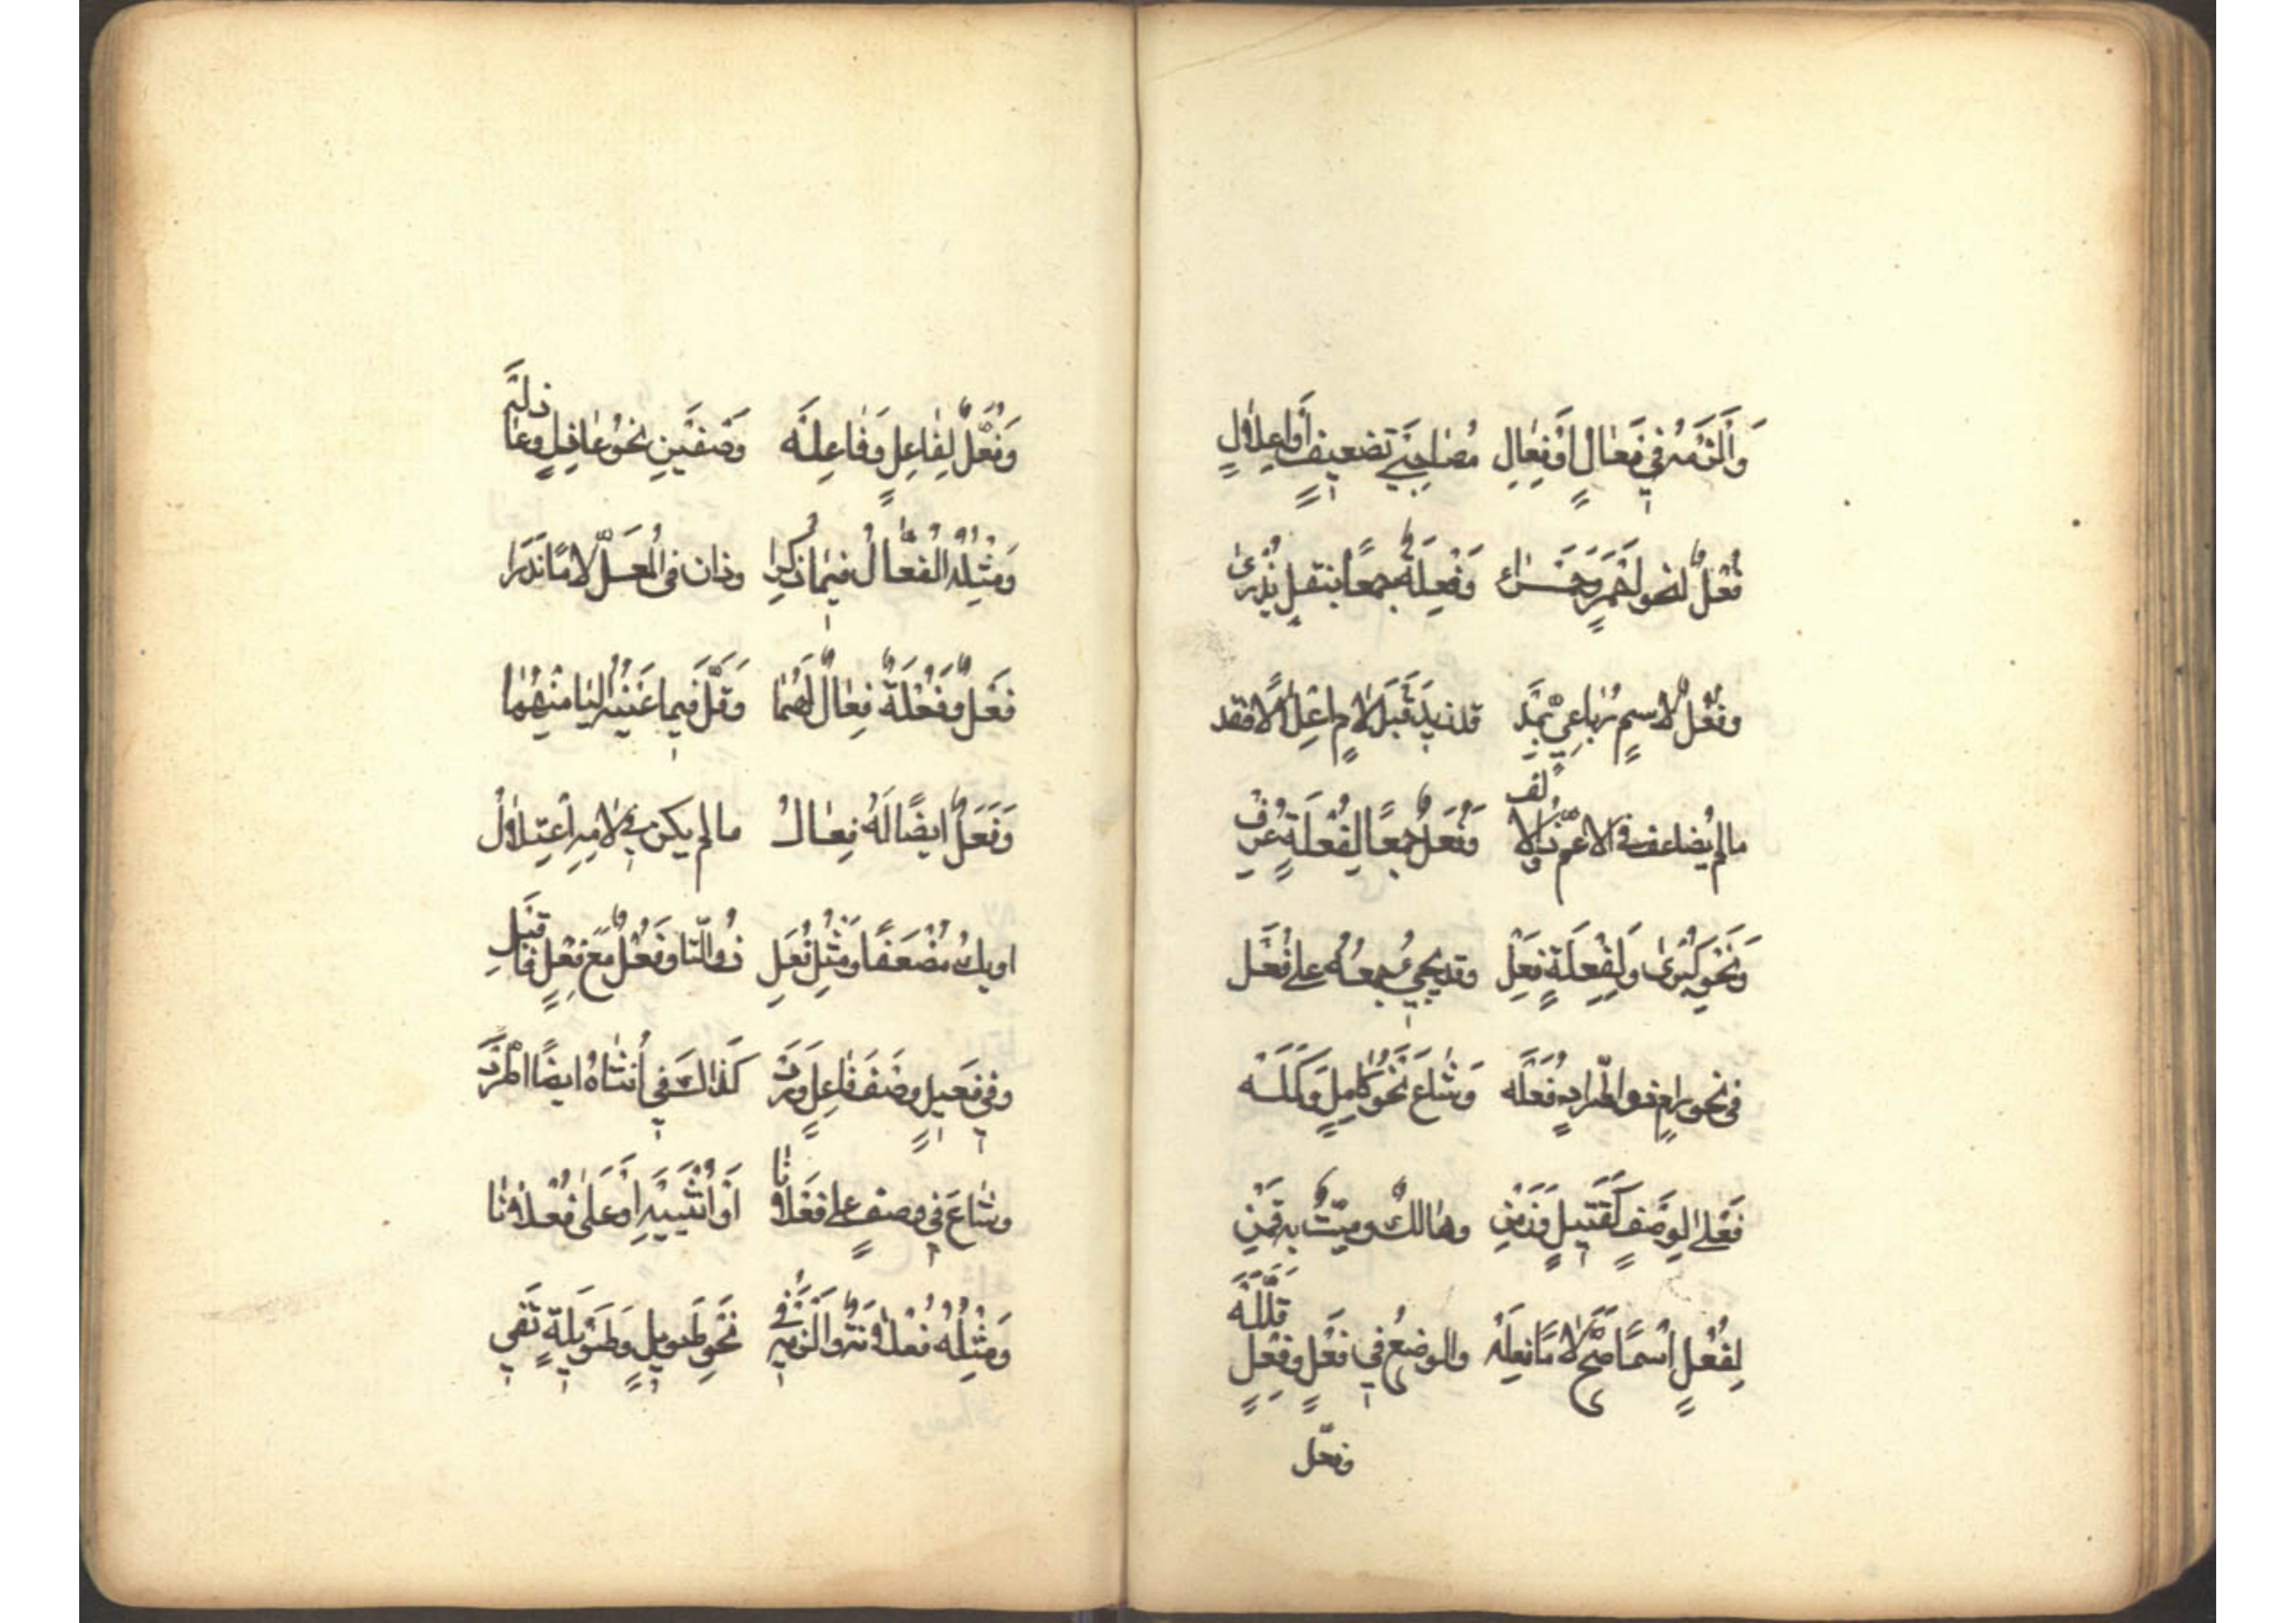 وَالْزَمْهُ فِي فَعَالٍ أَوْ فِعَالِ مُصَاحِبَيْ تَضعِيفٍ أَوْ إِعْلَالٍ
فُعْلٌ لنحو أحْمَرٍ وَحَمْرَاء وَفِعْلَةٌ جمعًا بنقلٍ يُدْرَى
وفُعُلٌ لاسمٍ رُبَاعِيٍّ بمَدّ قد زيدَ قَبْلَ لامٍ اعْلَالًا فقد
مالم يُضاعف في الاعمِّ ذُو الالف وَفُعَلٌ جمعًا لِفُعْلَةٍ عُرِفْ
وَنَحْوِ كُبْرَى وَلِفِعْلَةٍ فِعَلْ وقد يجيءُ جمعُهُ على فُعَلْ
في نحو رامٍ ذو اطّرادٍ فُعَلَه وَشَاعَ نَحْوُ كَامِلٍ وَكَمَلَه
فَعْلى لِوَصْفٍ كَقَتِيلٍ وَزَمِنْ وهَالكٌ وميّتٌ به قَمِنْ
لِفُعْلٍ اسْمًا صَحَّ لَامًا فِعَلَهْ والوضعُ في فَعْلٍ وفِعْلٍ قَلَّلَهْ
وفعّل
وَفُعَّلٌ لِفَاعِلٍ وَفَاعِلَه وَصْفَيْنِ نحوُ عَاذِلٍ وعَاذِلَه
وَمِثْلُهُ الفُعَّالُ فيمَا ذُكِّرَا وذان في المُعَلّ لامًا نَدَرَا
فَعْلٌ وَفَعْلَةٌ فِعَالٌ لَهُمَا وَقَلَّ فيما عَيْنُهُ اليَا مِنْهُمَا
وَفَعَلٌ ايضًا لَهُ فِعَالُ مالم يكن في لامِهِ اعْتِلَالُ
او يكُ مُضْعَفًا وَمِثْلُ فَعَلِ ذُو التّا وفُعْلٌ مَعَ فِعْلٍ فَاقْبَلِ
وفي فَعيلٍ وصْفَ فَاعِلٍ وَرَدْ كَذَاكَ في أُنثَاهُ ايضًا اطّرَدْ
وشَاعَ في وصفٍ على فَعْلَانَا أَوْ أُنْثَيَيْهِ أَوْ عَلَى فُعْلَانَا
وَمِثْلُهُ فُعْلَانَةٌ وَالْزَمْهُ فِي نَحْوِ طَوِيلٍ وَطَوِيلَةٍ تَفِي